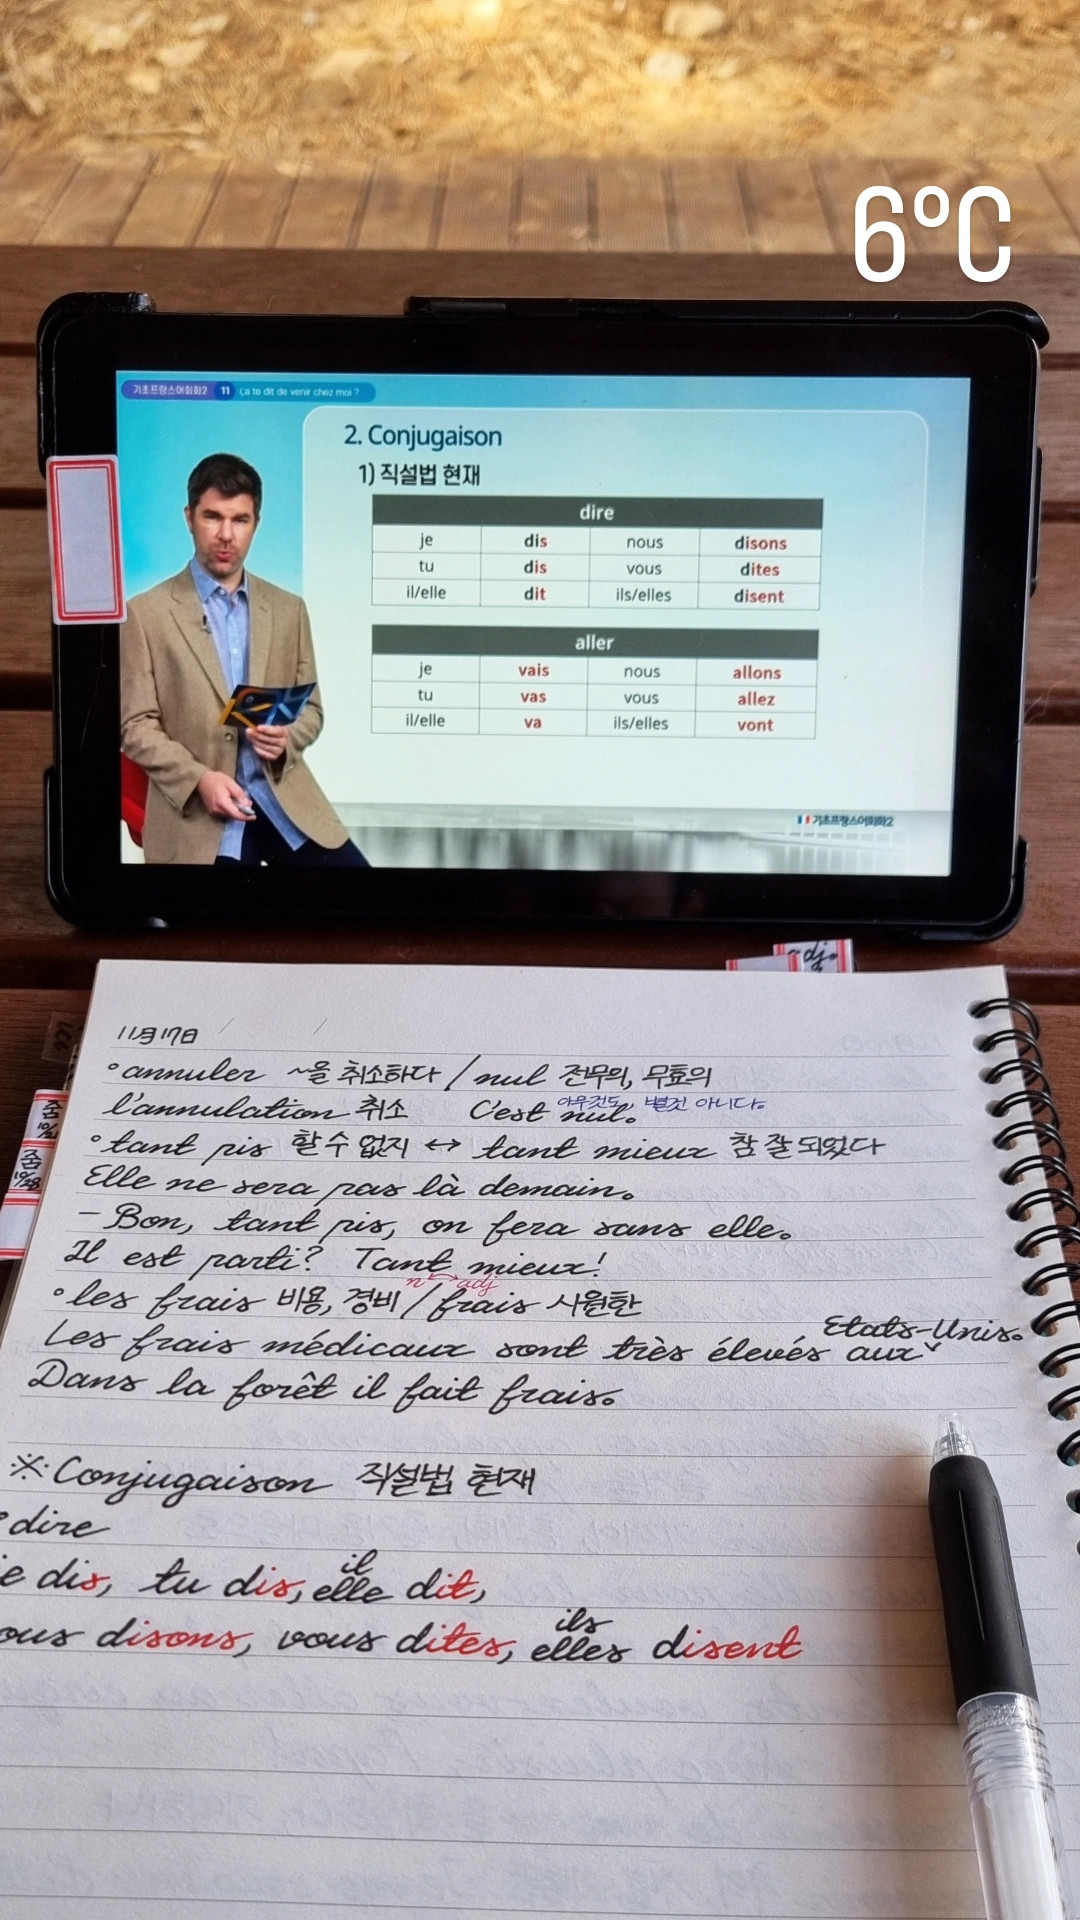 6°C
기초프랑스어회화2 11 Ça te dit de venir chez moi ?
2. Conjugaison
1) 직설법 현재
dire
je dis nous disons
tu dis vous dites
il/elle dit ils/elles disent
aller
je vais nous allons
tu vas vous allez
il/elle va ils/elles vont
기초프랑스어회화2
adj.
줌
10/21
줌
10/28
11月 17日
°annuler ~을 취소하다 / nul 전무의, 무효의
l'annulation 취소 C'est nul. 아무것도, 별것 아니다.
°tant pis 할 수 없지 ↔ tant mieux 참 잘 되었다
Elle ne sera pas là demain.
- Bon, tant pis, on fera sans elle.
Il est parti? Tant mieux!
n adj
°les frais 비용, 경비 / frais 시원한
Les frais médicaux sont très élevés aux Etats-Unis.
Dans la forêt il fait frais.
※Conjugaison 직설법 현재
°dire
e dis, tu dis, il elle dit,
ous disons, vous dites, ils elles disent